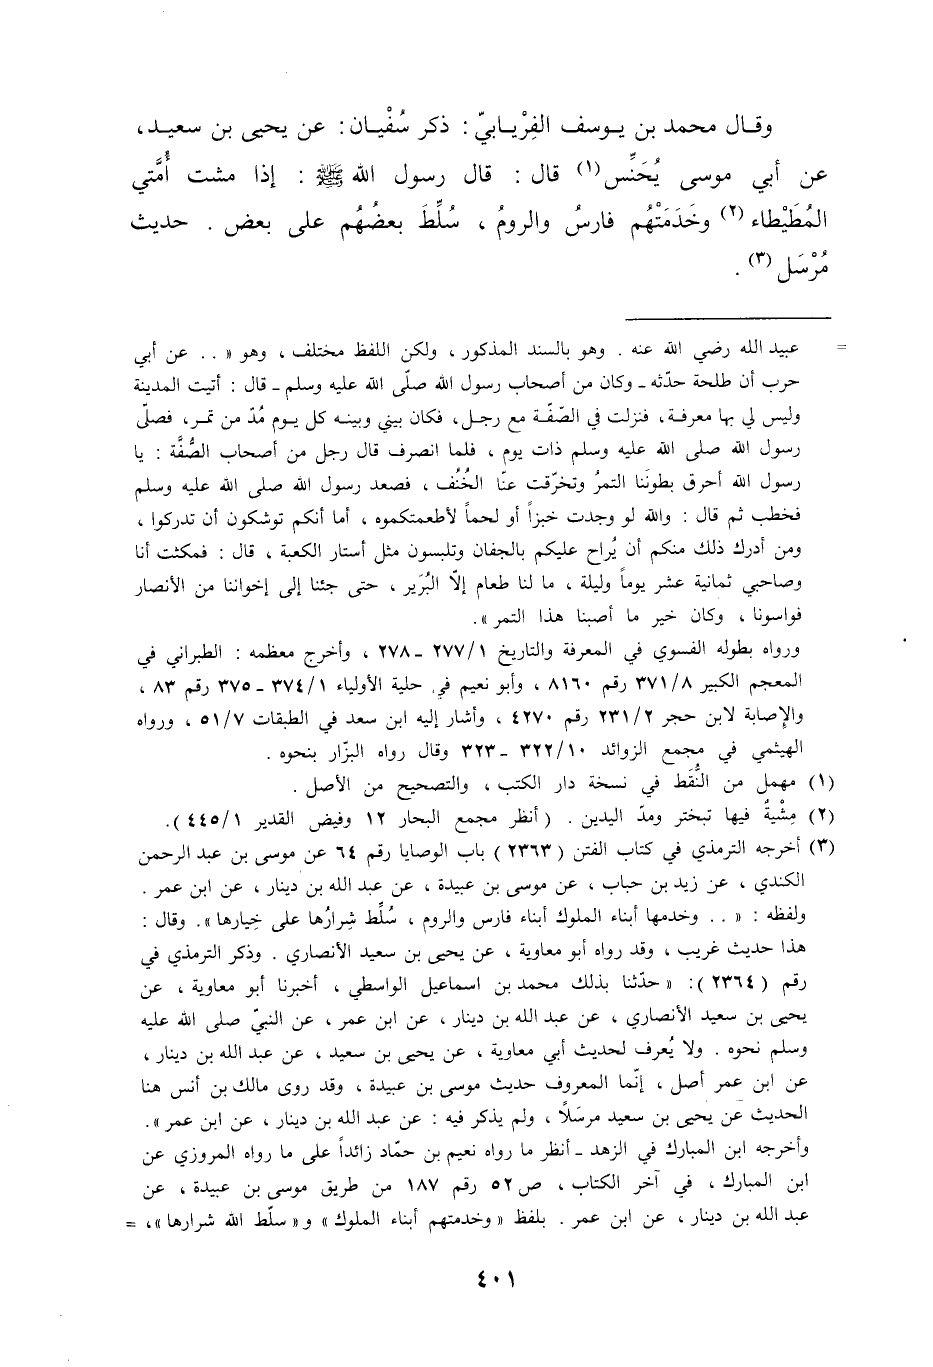 وقال محمد بن يوسف الفِرْيابيّ : ذكر سُفْيان : عن يحيى بن سعيد ،
عن أبي موسى يُحَنِّس (١) قال : قال رسول الله ﷺ : إذا مشت أُمَّتي
المُطَيْطاء (٢) وخَدَمَتْهُم فارسُ والرومُ ، سُلِّطَ بعضُهُم على بعض . حديث
مُرْسَل (٣) .
= عبيد الله رضي الله عنه . وهو بالسند المذكور ، ولكن اللفظ مختلف ، وهو « . . عن أبي
حرب أن طلحة حدّثه ـ وكان من أصحاب رسول الله صلّى الله عليه وسلم ـ قال : أتيت المدينة
وليس لي بها معرفة ، فنزلت في الصّفّة مع رجل ، فكان بيني وبينه كل يوم مُدّ من تمر ، فصلّى
رسول الله صلى الله عليه وسلم ذات يوم ، فلما انصرف قال رجل من أصحاب الصُّفَّة : يا
رسول الله أحرق بطوننا التمرُ وتخرّقت عنّا الخُنُف ، فصعد رسول الله صلى الله عليه وسلم
فخطب ثم قال : والله لو وجدت خبزاً أو لحماً لأطعمتكموه ، أما أنكم توشكون أن تدركوا ،
ومن أدرك ذلك منكم أن يُراح عليكم بالجفان وتلبسون مثل أستار الكعبة ، قال : فمكثت أنا
وصاحبي ثمانية عشر يوماً وليلة ، ما لنا طعام إلّا البُرَير ، حتى جئنا إلى إخواننا من الأنصار
فواسونا ، وكان خير ما أصبنا هذا التمر » .
ورواه بطوله الفسوي في المعرفة والتاريخ ١/ ٢٧٧ ـ ٢٧٨ ، وأخرج معظمه : الطبراني في
المعجم الكبير ٨/ ٣٧١ رقم ٨١٦٠ ، وأبو نعيم في حلية الأولياء ١/ ٣٧٤ ـ ٣٧٥ رقم ٨٣ ،
والإصابة لابن حجر ٢/ ٢٣١ رقم ٤٢٧٠ ، وأشار إليه ابن سعد في الطبقات ٧/ ٥١ ، ورواه
الهيثمي في مجمع الزوائد ١٠/ ٣٢٢ ـ ٣٢٣ وقال رواه البزّار بنحوه .
(١) مهمل من النُّقَط في نسخة دار الكتب ، والتصحيح من الأصل .
(٢) مِشْيةٌ فيها تبختر ومدّ اليدين . (أنظر مجمع البحار ١٢ وفيض القدير ١/ ٤٤٥) .
(٣) أخرجه الترمذي في كتاب الفتن (٢٣٦٣) باب الوصايا رقم ٦٤ عن موسى بن عبد الرحمن
الكندي ، عن زيد بن حباب ، عن موسى بن عبيدة ، عن عبد الله بن دينار ، عن ابن عمر .
ولفظه : « . . وخدمها أبناء الملوك أبناء فارس والروم ، سُلِّط شِرارُها على خِيارها » . وقال :
هذا حديث غريب ، وقد رواه أبو معاوية ، عن يحيى بن سعيد الأنصاري . وذكر الترمذي في
رقم (٢٣٦٤) : « حدّثنا بذلك محمد بن اسماعيل الواسطي ، أخبرنا أبو معاوية ، عن
يحيى بن سعيد الأنصاري ، عن عبد الله بن دينار ، عن ابن عمر ، عن النبيّ صلى الله عليه
وسلم نحوه . ولا يُعرف لحديث أبي معاوية ، عن يحيى بن سعيد ، عن عبد الله بن دينار ،
عن ابن عمر أصل ، إنّما المعروف حديث موسى بن عبيدة ، وقد روى مالك بن أنس هنا
الحديث عن يحيى بن سعيد مرسَلاً ، ولم يذكر فيه : عن عبد الله بن دينار ، عن ابن عمر » .
وأخرجه ابن المبارك في الزهد ـ أنظر ما رواه نعيم بن حمّاد زائداً على ما رواه المروزي عن
ابن المبارك ، في آخر الكتاب ، ص ٥٢ رقم ١٨٧ من طريق موسى بن عبيدة ، عن
عبد الله بن دينار ، عن ابن عمر . بلفظ « وخدمتهم أبناء الملوك » و « سلّط الله شرارها » ، =
٤٠١